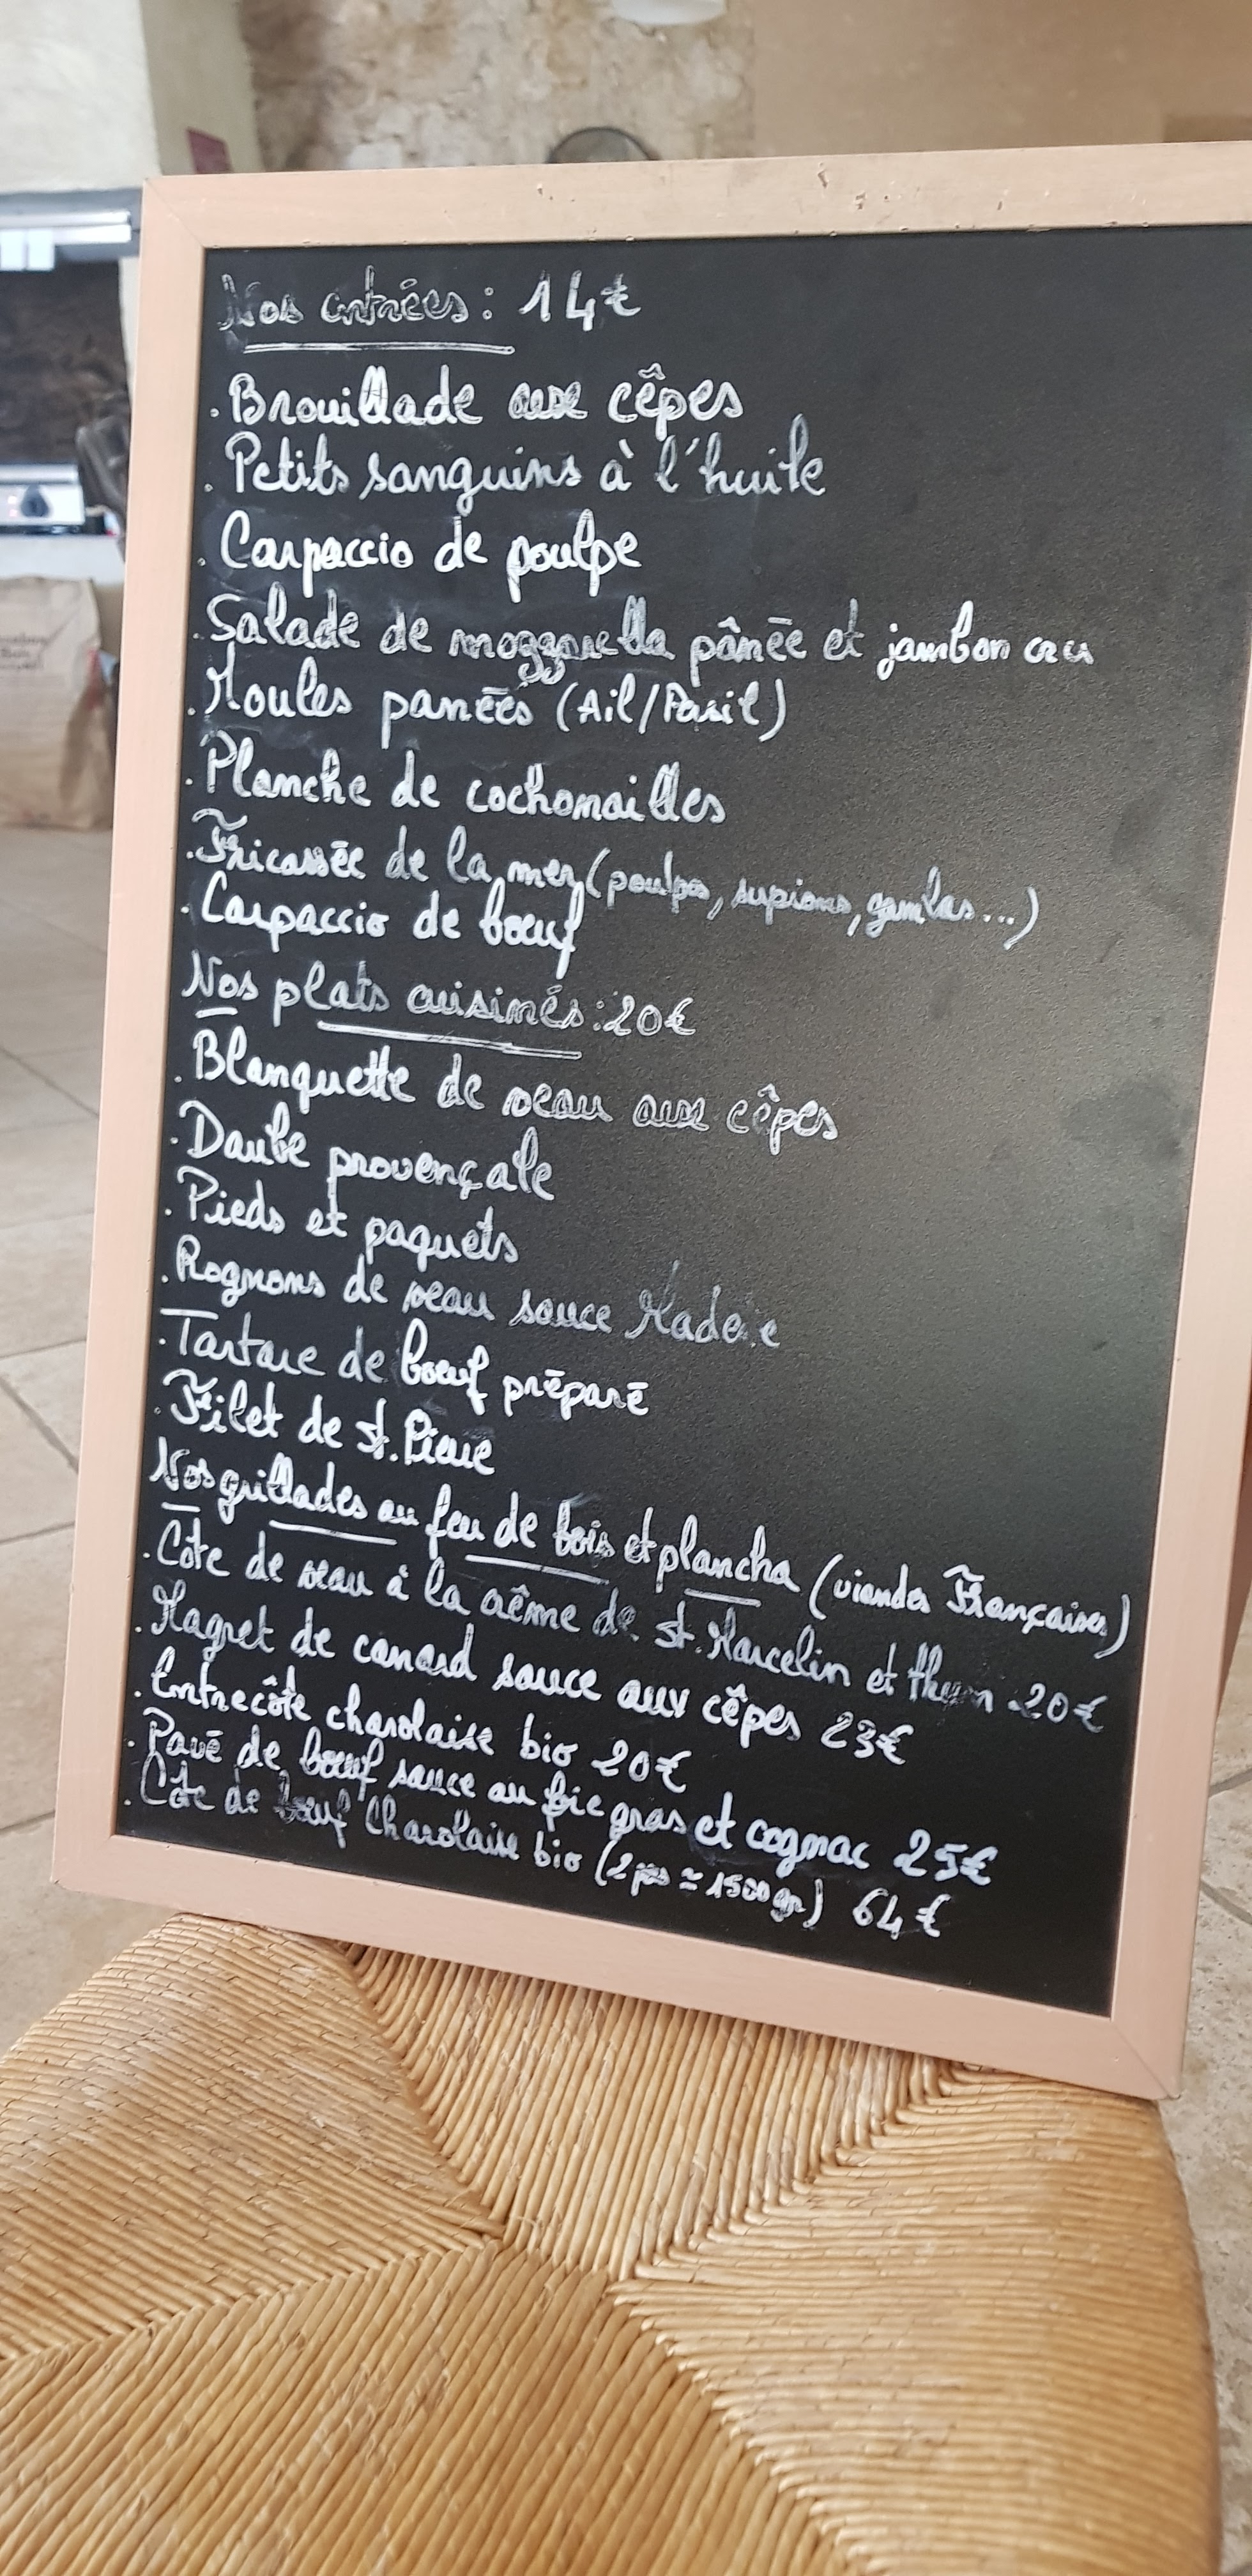 Nos entrées : 14€
. Brouillade aux cêpes
. Petits sanguins à l'huile
. Carpaccio de poulpe
. Salade de mozzarella pânée et jambon cru
. Moules panées (Ail/Persil)
. Planche de cochonailles
. Fricassée de la mer (poulpes, supions, gambas...)
. Carpaccio de bœuf
Nos plats cuisinés : 20€
. Blanquette de veau aux cêpes
. Daube provençale
. Pieds et paquets
. Rognons de veau sauce Madère
. Tartare de bœuf préparé
. Filet de st. Pierre
Nos grillades au feu de bois et plancha (viandes Françaises)
. Côte de veau à la crême de st. Marcelin et thym 20€
. Magret de canard sauce aux cêpes 23€
. Entrecôte charolaise bio 20€
. Pavé de bœuf sauce au foie gras et cognac 25€
. Côte de bœuf Charolaise bio (2 pers ≃ 1500gr) 64€